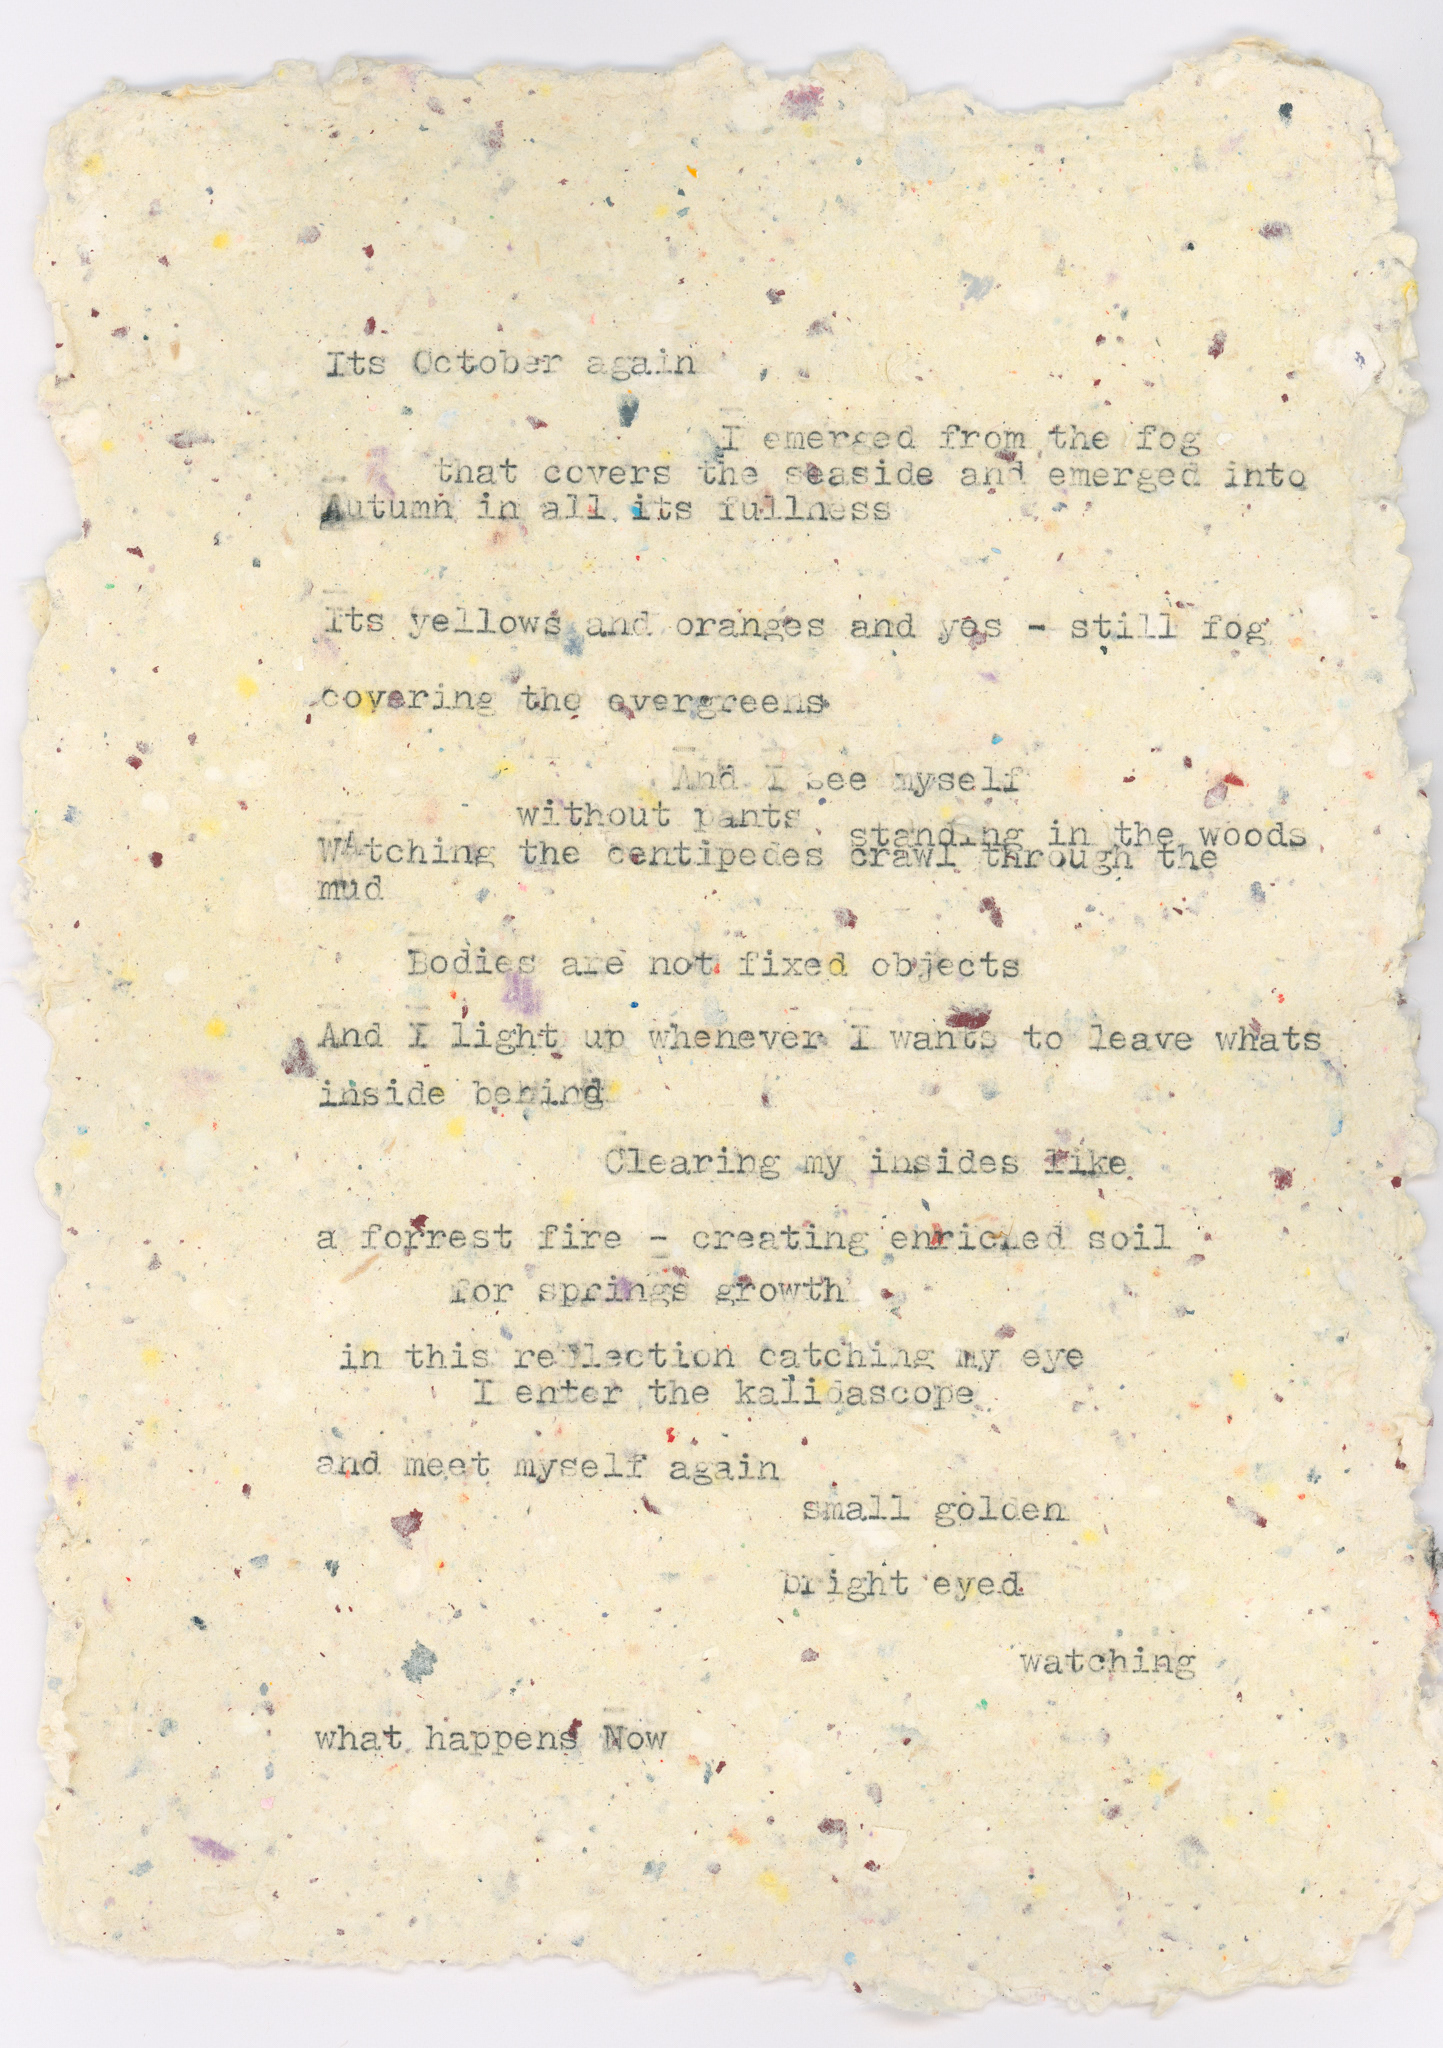 Its October again
I emerged from the fog
that covers the seaside and emerged into
Autumn in all its fullness
Its yellows and oranges and yes - still fog
covering the evergreens
And I see myself
without pants
standing in the woods
WAtching the centipedes crawl through the
mud
Bodies are not fixed objects
And I light up whenever I wants to leave whats
inside behind
Clearing my insides like
a forrest fire - creating enriched soil
for springs growth
in this reflection catching my eye
I enter the kalidascope
and meet myself again
small golden
bright eyed
watching
what happens Now